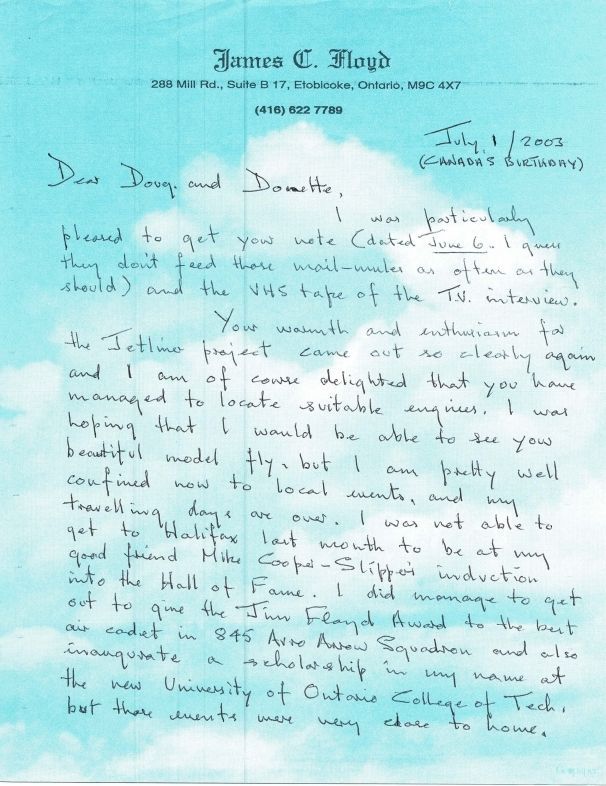 James C. Floyd
288 Mill Rd., Suite B 17, Etobicoke, Ontario, M9C 4X7
(416) 622 7789
July 1 / 2003
(CANADA'S BIRTHDAY)
Dear Doug. and Donette,
I was particularly
pleased to get your note (dated June 6. I guess
they don't feed those mail-mules as often as they
should) and the VHS tape of the T.V. interview.
Your warmth and enthusiasm for
the Jetliner project came out so clearly again
and I am of course delighted that you have
managed to locate suitable engines. I was
hoping that I would be able to see your
beautiful model fly, but I am pretty well
confined now to local events, and my
travelling days are over. I was not able to
get to Halifax last month to be at my
good friend Mike Cooper-Slipper's induction
into the Hall of Fame. I did manage to get
out to give the Jim Floyd Award to the best
air cadet in 845 Avro Arrow Squadron and also
inaugurate a scholarship in my name at
the new University of Ontario College of Tech,
but those events were very close to home.